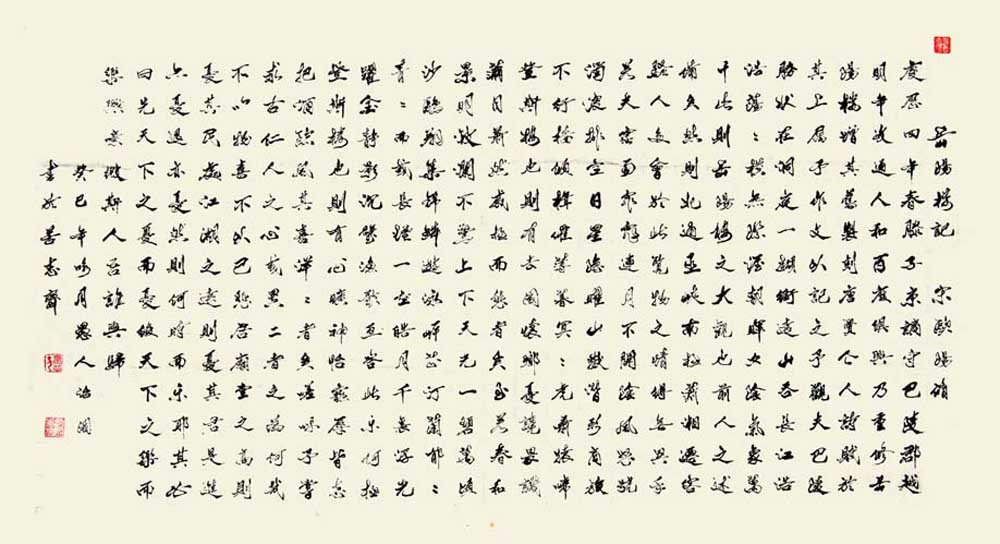 岳陽樓記 宋歐陽脩
慶曆四年春滕子京謫守巴陵郡越
明年政通人和百廢俱興乃重修岳
陽樓增其舊製刻唐賢今人詩賦於
其上屬予作文以記之予觀夫巴陵
勝狀在洞庭一湖銜遠山吞長江浩
浩蕩〻橫無際涯朝暉夕陰氣象萬
千此則岳陽樓之大觀也前人之述
備矣然則北通巫峽南極瀟湘遷客
騷人多會於此覽物之情得無異乎
若夫霪雨霏霏連月不開陰風怒號
濁浪排空日星隱曜山嶽潛形商旅
不行檣傾楫摧薄暮冥〻虎嘯猿啼
登斯樓也則有去國懷鄉憂讒畏譏
滿目蕭然感極而悲者矣至若春和
景明波瀾不驚上下天光一碧萬頃
沙鷗翔集錦鱗游泳岸芷汀蘭郁〻
青〻而或長煙一空皓月千里浮光
躍金靜影沉璧漁歌互答此樂何極
登斯樓也則有心曠神怡寵辱皆忘
把酒臨風其喜洋〻者矣嗟呼予嘗
求古仁人之心或異二者之為何哉
不以物喜不以己悲居廟堂之高則
憂其民處江湖之遠則憂其君是進
亦憂退亦憂然則何時而樂耶其必
曰先天下之憂而憂後天下之樂而
樂歟噫微斯人吾誰與歸
癸巳年吟月愚人治國
書於善志齋